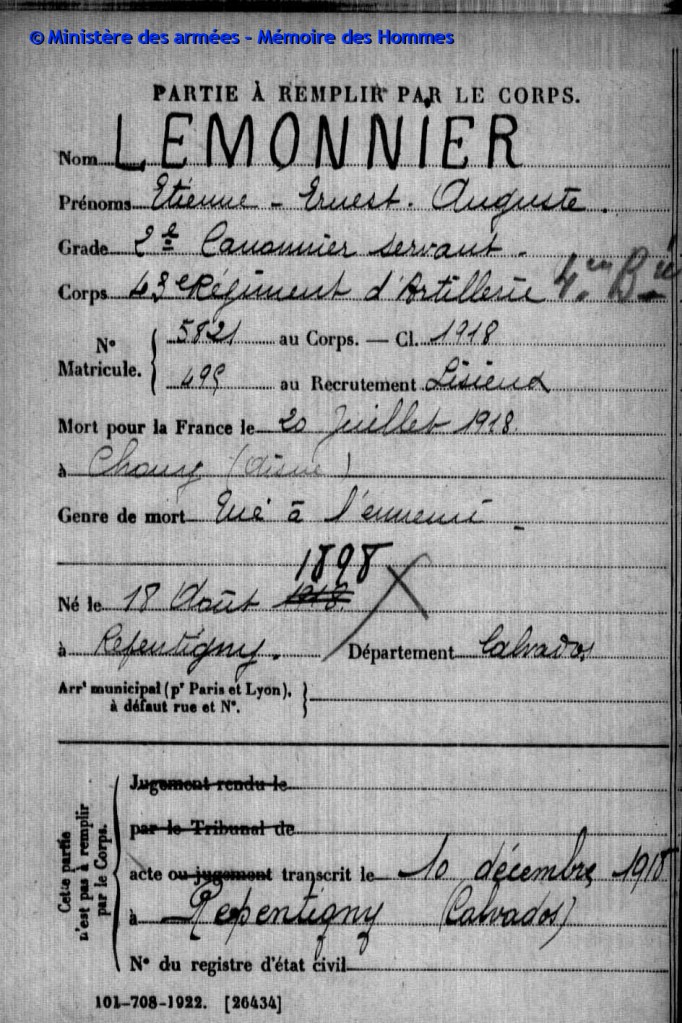 © Ministère des armées - Mémoire des Hommes
PARTIE À REMPLIR PAR LE CORPS.
Nom LEMONNIER
Prénoms Etienne - Ernest - Auguste.
Grade 2e Canonnier servant.
Corps 43e Régiment d'Artillerie 4me Bie
N° Matricule. { 5821 au Corps. — Cl. 1918
495 au Recrutement Lisieux
Mort pour la France le 20 Juillet 1918
à Chouy (Aisne)
Genre de mort Tué à l'ennemi
1898
Né le 18 Août 1918
à Repentigny. Département Calvados
Arrt municipal (pr Paris et Lyon), à défaut rue et N°.
Cette partie n'est pas à remplir par le Corps.
Jugement rendu le
par le Tribunal de
acte ou jugement transcrit le 10 décembre 1918
à Repentigny (Calvados)
N° du registre d'état civil
101-708-1922. [26434]